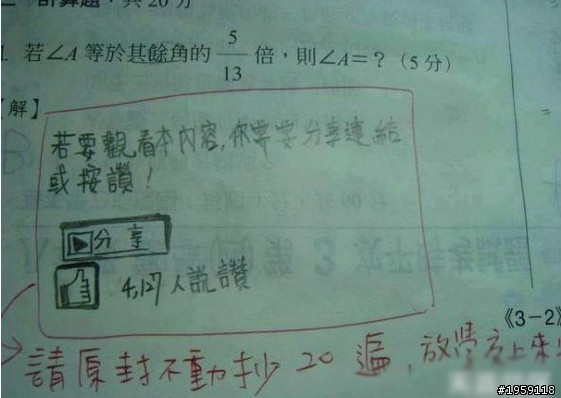 計算題，共20分
1. 若∠A等於其餘角的 5/13 倍，則∠A=？（5分）
【解】
若要觀看本內容，你需要分享連結
或按讚！
分享
4,127人說讚
《3-2》
請原封不動抄20遍，放學交上來
#1959118